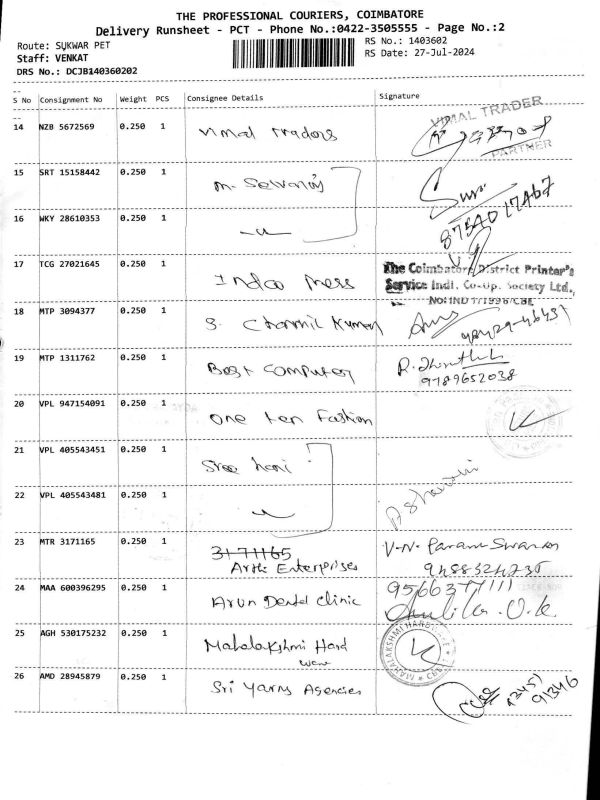 THE PROFESSIONAL COURIERS, COIMBATORE
Delivery Runsheet - PCT - Phone No.:0422-3505555 - Page No.:2
Route: SUKWAR PET
RS No.: 1403602
Staff: VENKAT
RS Date: 27-Jul-2024
DRS No.: DCJB140360202
S No Consignment No Weight PCS Consignee Details Signature
14 NZB 5672569 0.250 1 Vimal Traders
VIMAL TRADER
PARTNER
15 SRT 15158442 0.250 1 M. Selvaraj
16 WKY 28610353 0.250 1
17 TCG 27021645 0.250 1 Indco Press
The Coimbatore District Printer's
Service Indl. Co-Op. Society Ltd.,
18 MTP 3094377 0.250 1 S. Kumar
19 MTP 1311762 0.250 1 Best Computer
9789652038
20 VPL 947154091 0.250 1 One Ten Fashion
21 VPL 405543451 0.250 1 Sree hari
22 VPL 405543481 0.250 1
23 MTR 3171165 0.250 1 3171165
Enterprises
V.N.
24 MAA 600396295 0.250 1 Arun Dental Clinic
25 AGH 530175232 0.250 1 Mahalakshmi Hard
ware
MAHALAKSHMI HARDWARE
26 AMD 28945879 0.250 1 Sri Yarns Agencies